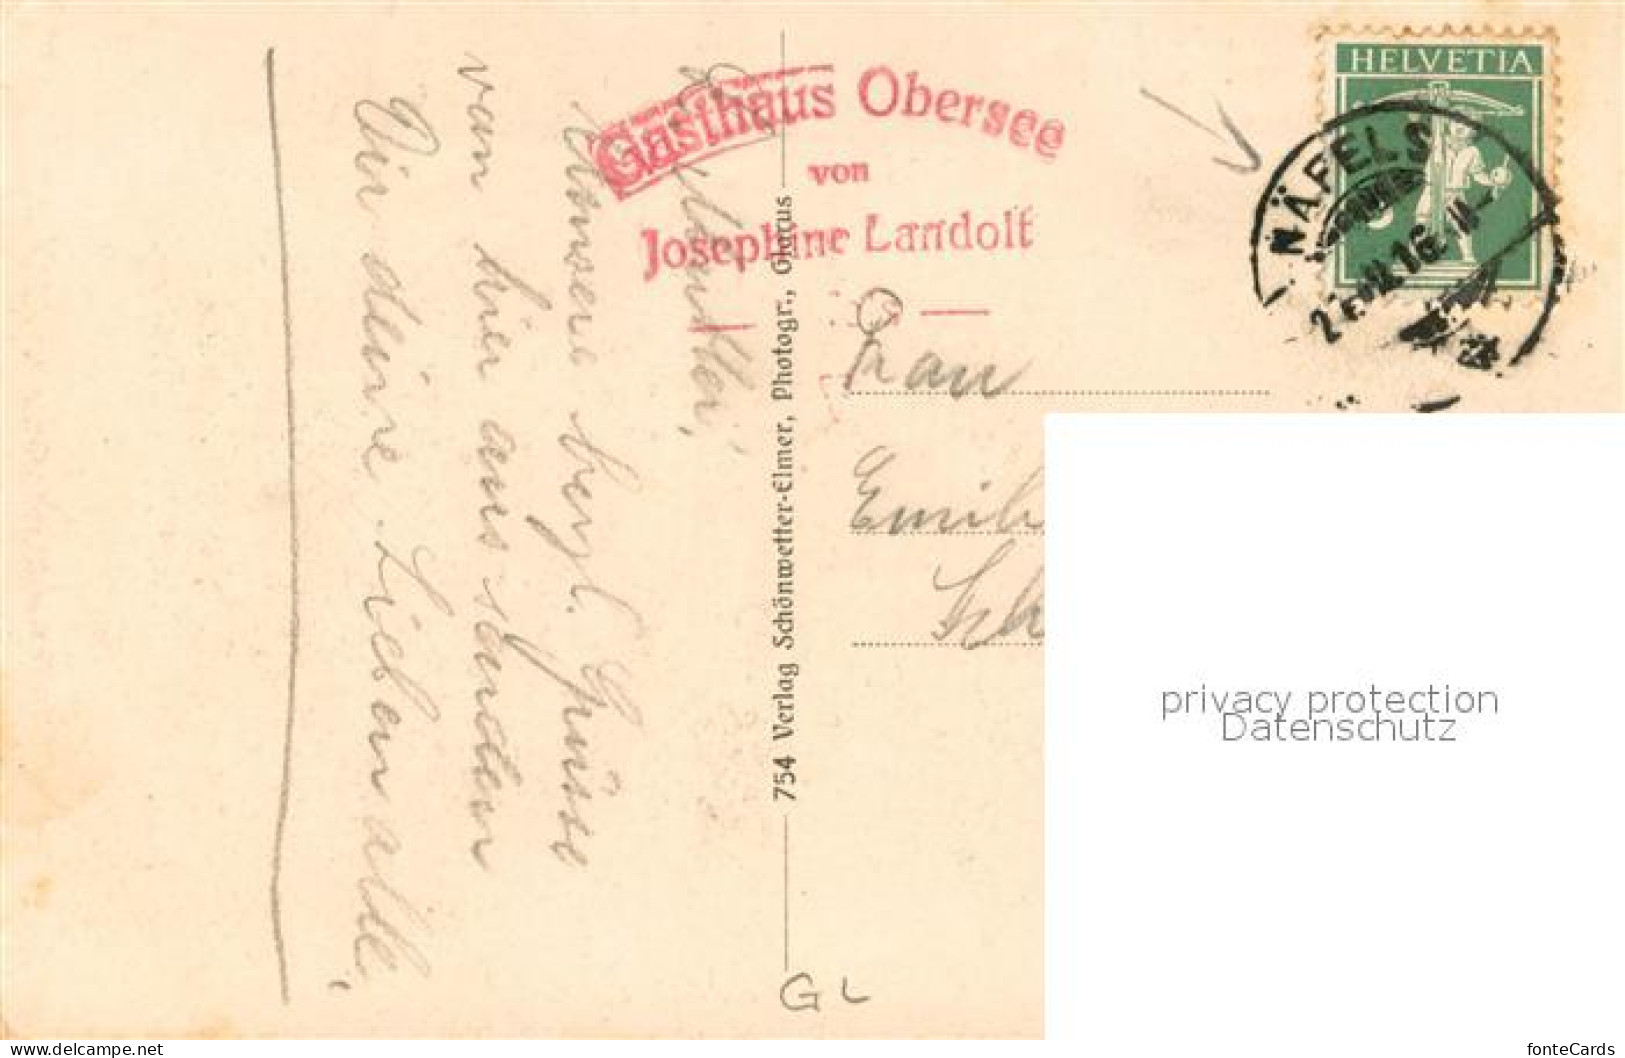 Gasthaus Obersee
von
Josephine Landolt
HELVETIA
NÄFELS
L. Mutter,
Unsere herzl. Grüsse
von hier aus senden
Dir deine Lieben alle,
754 Verlag Schönwetter-Elmer, Photogr., Glarus
Frau
Emil
Sch
privacy protection
Datenschutz
GL
www.delcampe.net
fonteCards